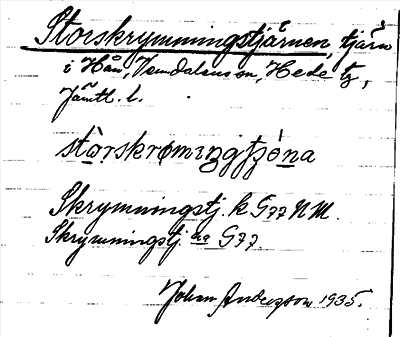 Storskrymmingstjärnen, tjärn
i Hån, Vemdalens sn, Hede tg,
Jämtl. l.
stòrskrømingtjǿna
Skrymningstj. k G77 NM.
Skrymningstj. ha G77.
Johan Andersson 1935.